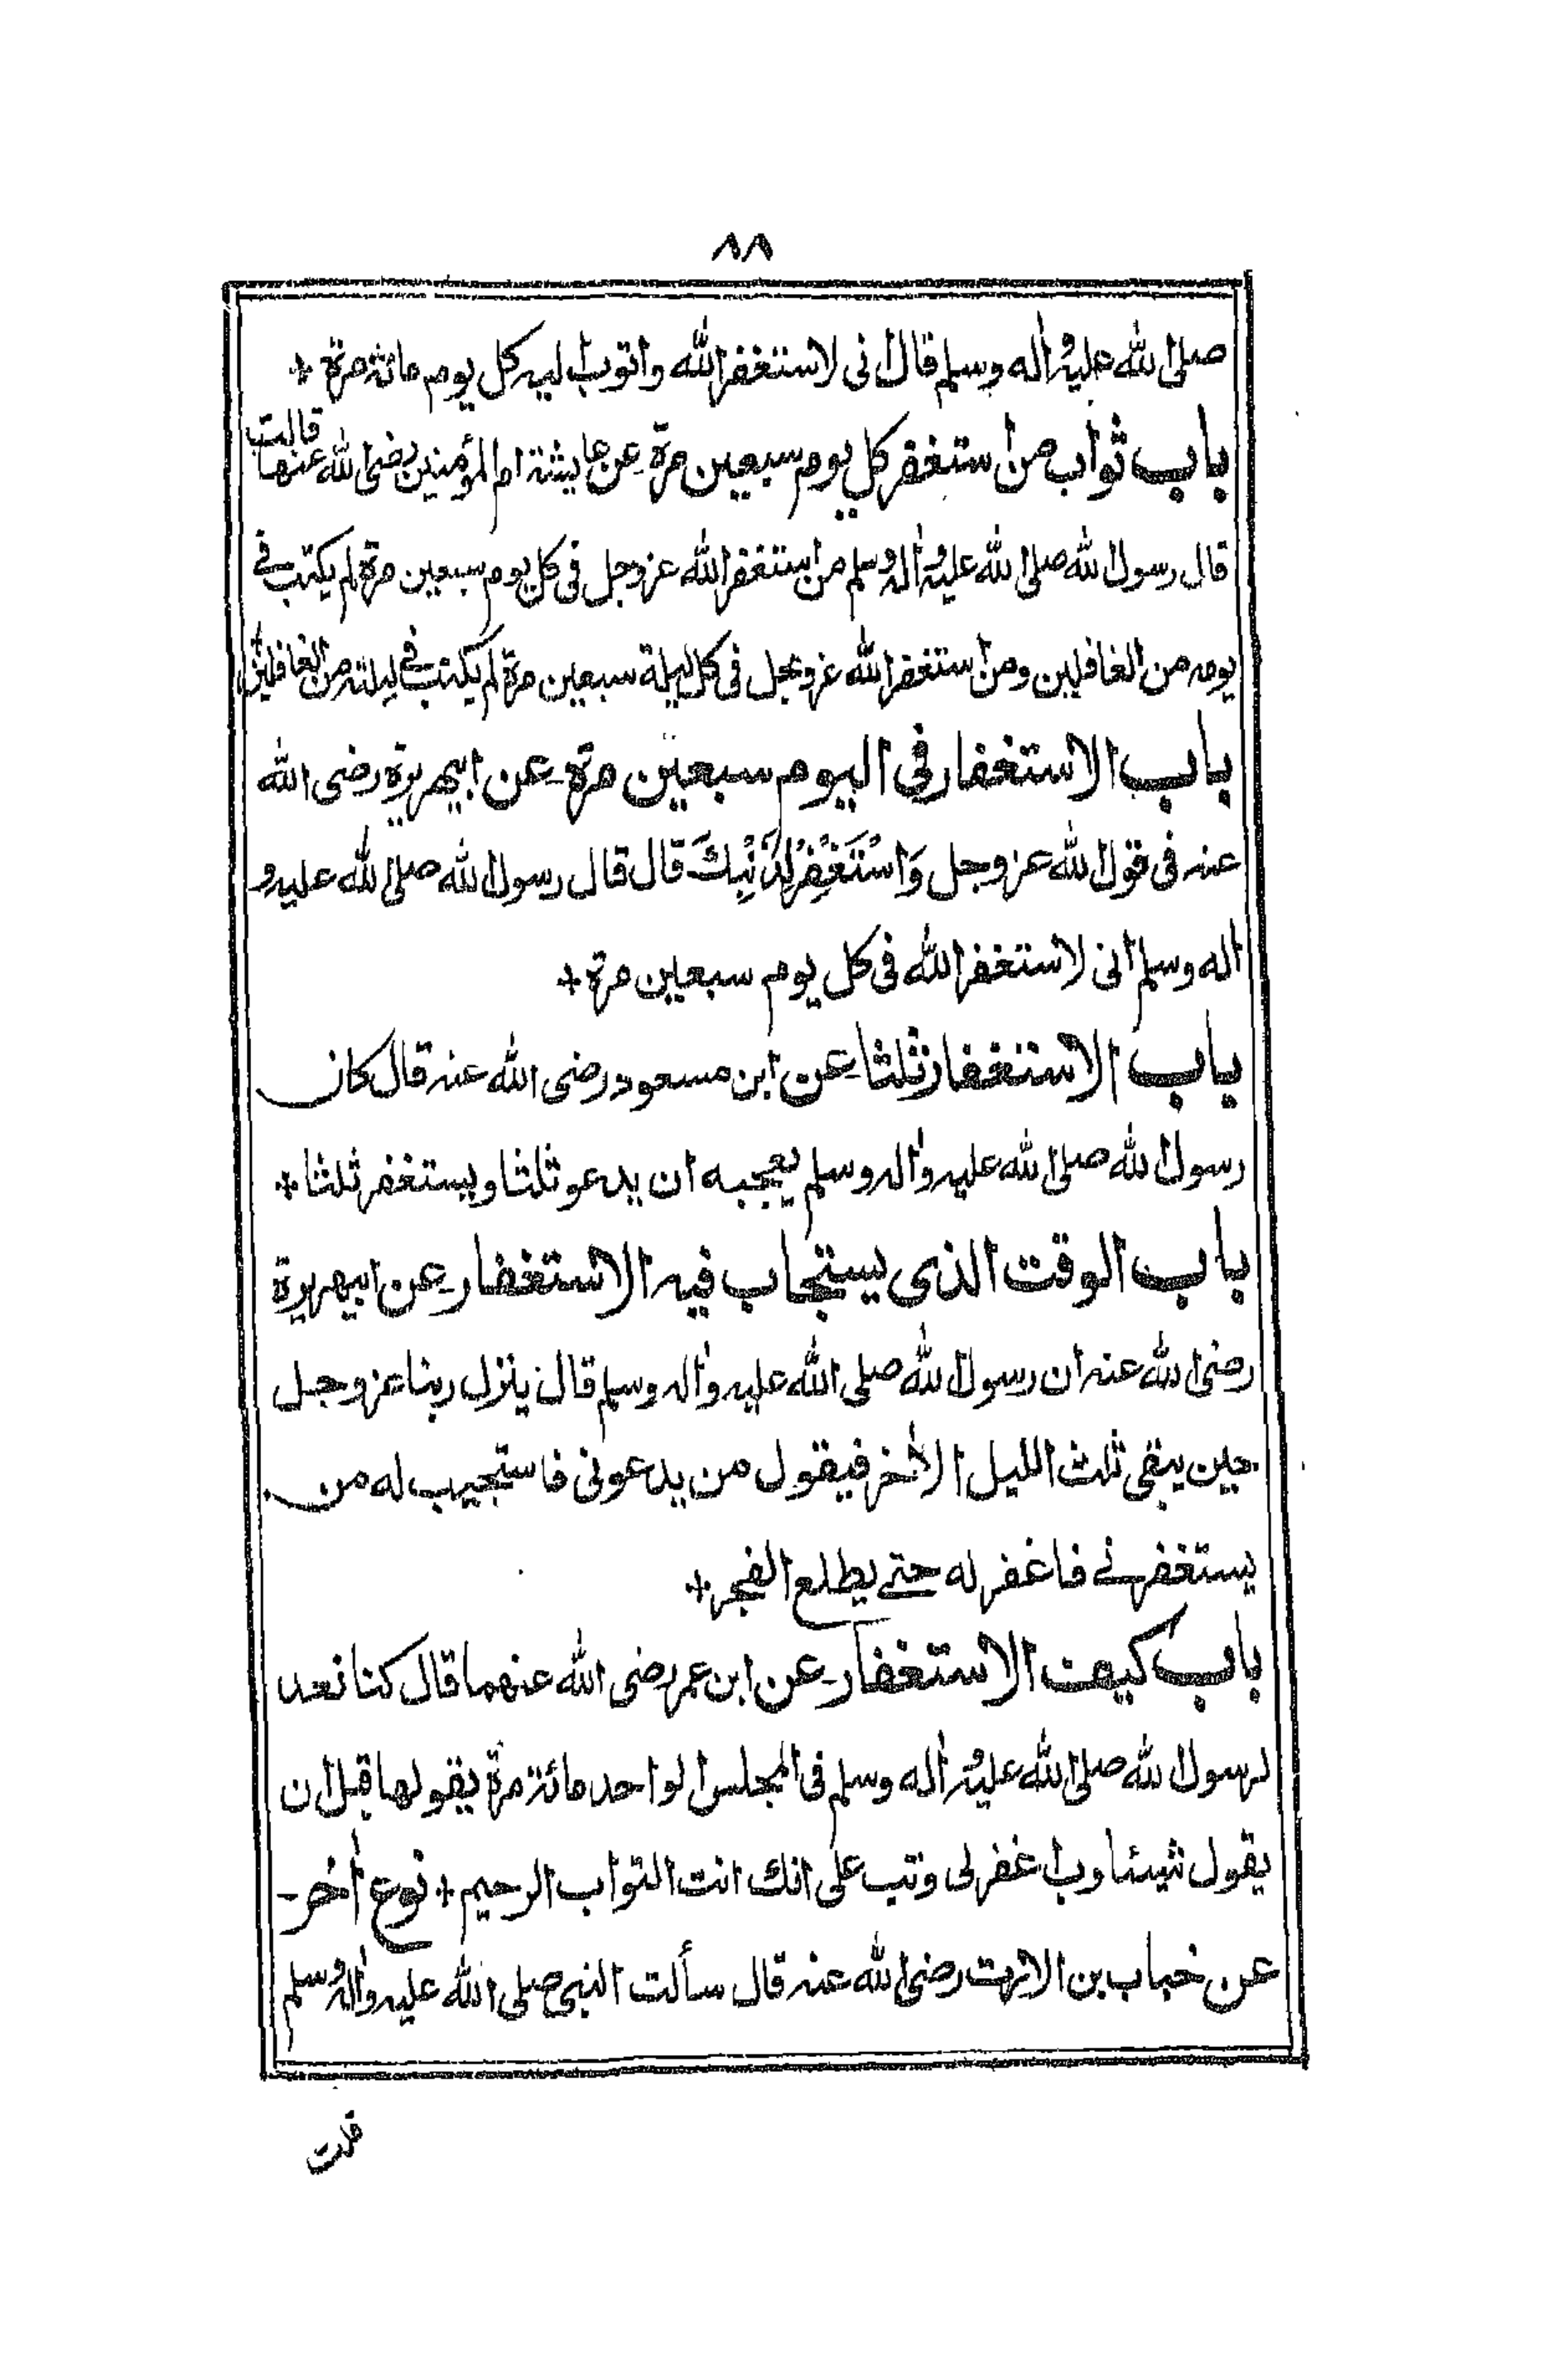 ٨٨
صلى الله عليه واله وسلم قال انى لاستغفر الله واتوب اليه كل يوم مائة مرة +
باب ثواب من استغفر كل يوم سبعين مرة عن عايشة ام المؤمنين رضى الله عنها قالت
قال رسول الله صلى الله عليه واله وسلم من استغفر الله عزوجل فى كل يوم سبعين مرة لم يكتب فے
يومه من الغافلين ومن استغفر الله عزوجل فى كل ليلة سبعين مرة لم يكتب فے ليلته من الغافلين +
باب الاستغفار فى اليوم سبعين مرة عن ابيهريرة رضى الله
عنه فى قول الله عزوجل وَاسْتَغْفِرْ لِذَنْبِكَ قال قال رسول الله صلى الله عليه و
اله وسلم انى لاستغفر الله فى كل يوم سبعين مرة +
باب الاستغفار ثلثا عن ابن مسعود رضى الله عنه قال كان
رسول الله صلى الله عليه واله وسلم يعجبه ان يدعو ثلثا ويستغفر ثلثا +
باب الوقت الذى يستجاب فيه الاستغفار عن ابيهريرة
رضى الله عنه ان رسول الله صلى الله عليه واله وسلم قال ينزل ربنا عزوجل
حين يبقى ثلث الليل الاٰخر فيقول من يدعونى فاستجيب له من
يستغفرنے فاغفر له حتے يطلع الفجر +
باب كيف الاستغفار عن ابن عمر رضى الله عنهما قال كنا نعد
لرسول الله صلى الله عليه واله وسلم فى المجلس الواحد مائة مرة يقولها قبل ان
يقول شيئا رب اغفر لى وتب على انك انت التواب الرحيم + نوع اٰخر-
عن خباب بن الارت رضى الله عنه قال سألت النبى صلى الله عليه واله وسلم
قلت